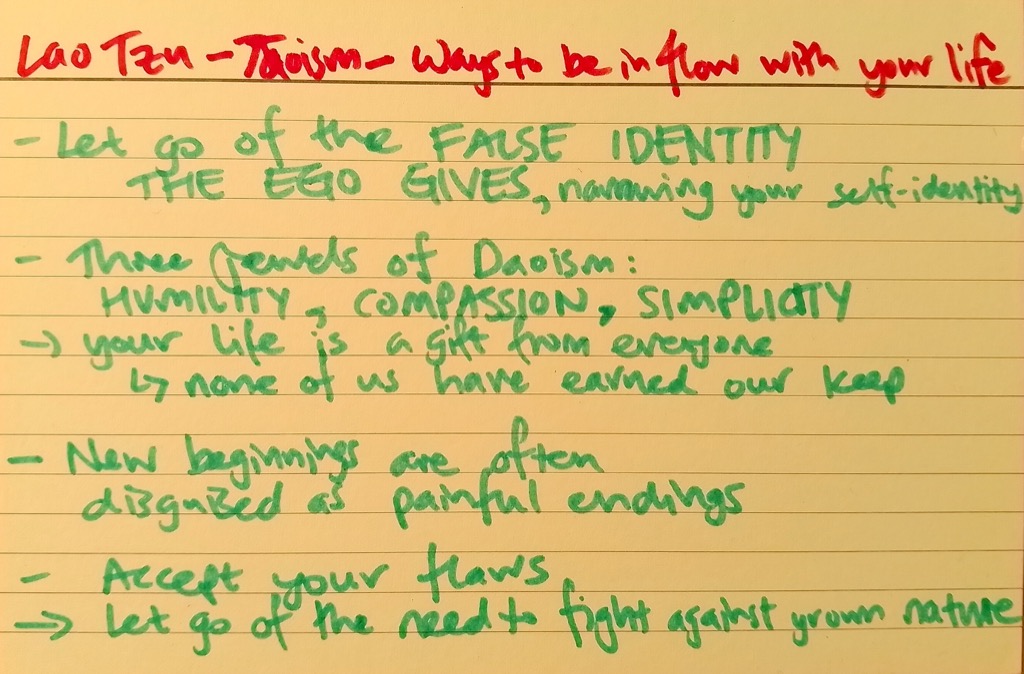 Lao Tzu - Taoism - Ways to be in flow with your life
- Let go of the FALSE IDENTITY
THE EGO GIVES, narrowing your self-identity
- Three Jewels of Daoism:
HUMILITY, COMPASSION, SIMPLICITY
→ your life is a gift from everyone
↳ none of us have earned our keep
- New beginnings are often
disguised as painful endings
- Accept your flaws
→ Let go of the need to fight against yrown nature